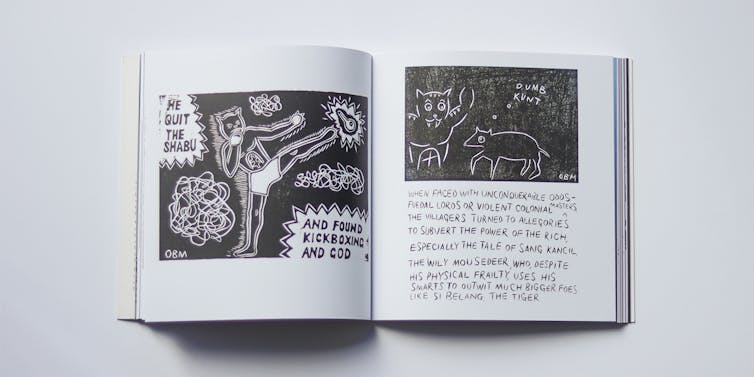 HE
QUIT
THE
SHABU
AND FOUND
KICKBOXING
AND GOD
OBM
DUMB
KUNT
OBM
WHEN FACED WITH UNCONQUERABLE ODDS-
FUEDAL LORDS OR VIOLENT COLONIAL MASTERS,
THE VILLAGERS TURNED TO ALLEGORIES
TO SUBVERT THE POWER OF THE RICH,
ESPECIALLY THE TALE OF SANG KANCIL,
THE WILY MOUSEDEER, WHO, DESPITE
HIS PHYSICAL FRAILTY, USES HIS
SMARTS TO OUTWIT MUCH BIGGER FOES
LIKE SI BELANG, THE TIGER